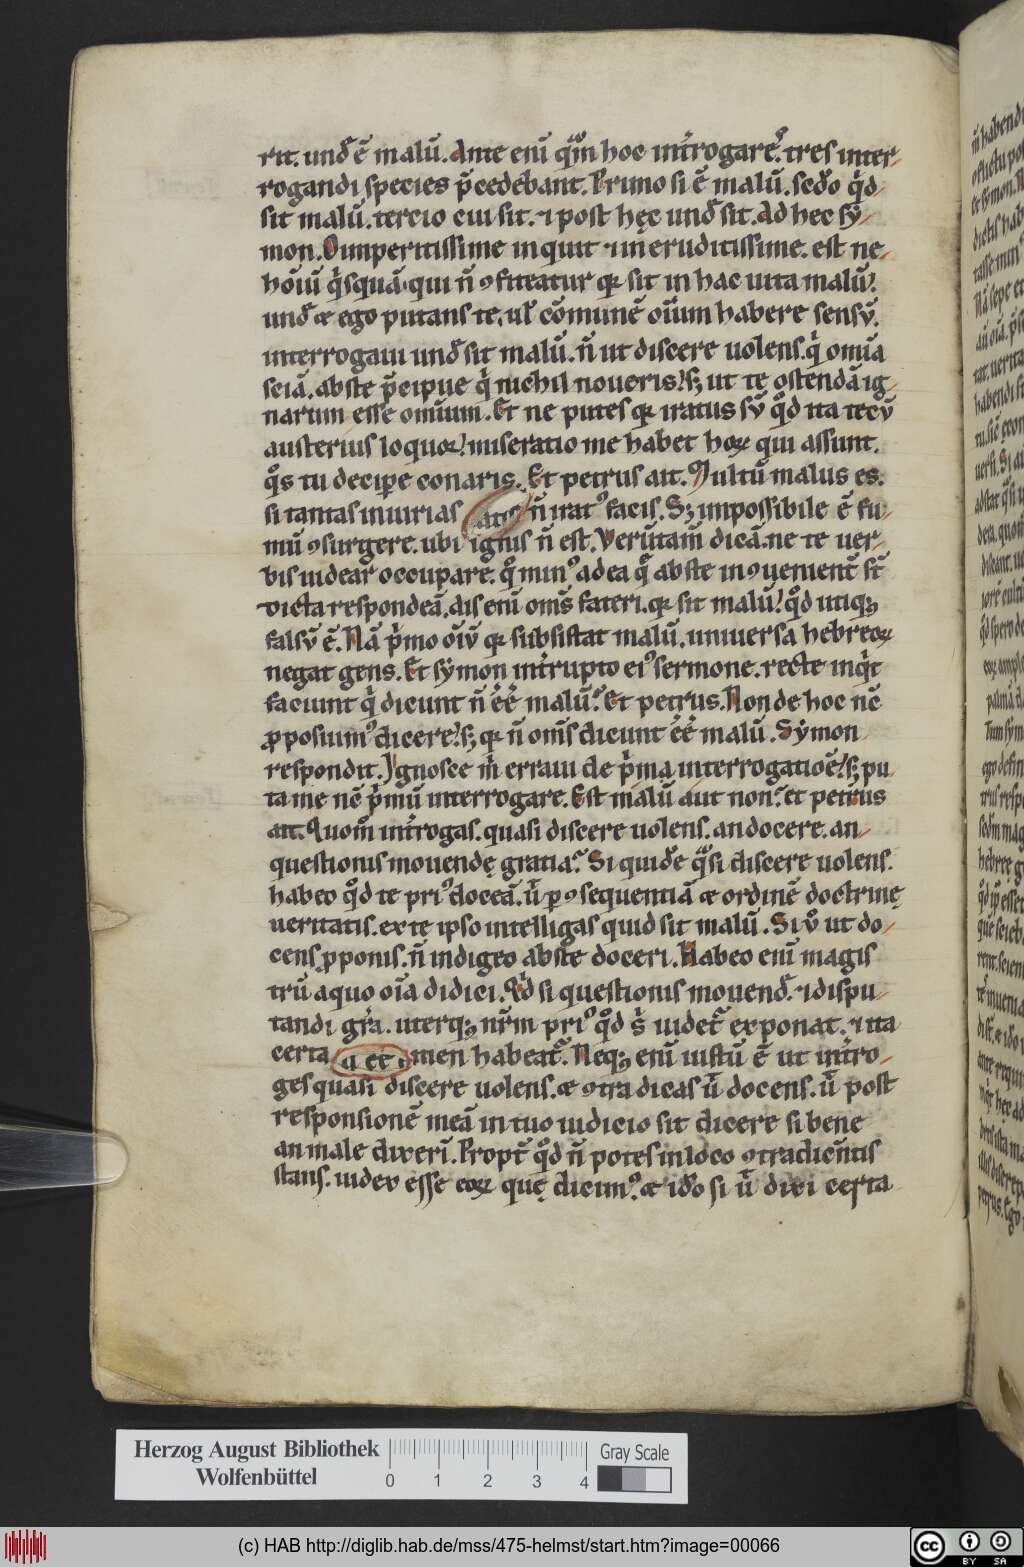 rit. und̄ ē malū. Ante enī qm̄ hoc int̄rogaret᷑. tres inter-
rogandi species p̄cedebant. Primo si ē malū. sed̄o qi̇d
sit malū. tercio cui sit. ⁊ post hęc und̄ sit. Ad hec sẏ-
mon. O imperitissime inquit ⁊ ineruditissime. est ne
hōiū qi̇squā. qui ñ ꝯfiteatur qꝛ sit in hac uita malū?
und̄ æ ego putans te, ul̄ cōmunē oīum habere sensū.
interrogaui und̄ sit malū. ñ ut discere uolens. qi̇ omīa
sciā. abs te p̄cipue qi̇ nichil noueris! sꝫ ut te ostendā ig-
narum esse omīum. Et ne putes qꝛ iratus sū qd̄ ita tecū
austerius loquor! miseratio me habet hoꝝ qui assunt.
qo̊s tu decipe conaris. Et petrus ait. Multū malus es.
si tantas iniurias ñ iratꝰ facis. Sꝫ impossibile ē fu-
mū ꝯsurgere. ubi ignis ñ est. Verūtam̄ dicā. ne te uer-
bis uidear occupare. qo̊ minꝰ ad ea qͣ abs te inꝯuenient᷑ st̄
dicta respondeā. dis enī om̄s fateri. qꝛ sit malū! qd̄ utiqꝫ
falsū ē. Nā p̄mo oīū qꝛ subsistat malū. uniuersa hebreoꝝ
negat gens. Et sẏmon int̄rupto eiꝰ sermone. recte inqi̇t
faciunt qi̇ dicunt ñ e̅e̅ malū. Et petrus. Non de hoc nc̄
ꝓposuimꝰ dicere! sꝫ qꝛ ñ om̄s dicunt e̅e̅ malū. Sẏmon
respondit. Ignosce m̄ erraui de p̄ma interrogatiōe! sꝫ pu-
ta me nc̄ p̄mū interrogare. Est malū aut non. et petrus
ait. Quom̄ int̄rogas. quasi discere uolens. an docere. an-
questionis mouendę gratia. Si quidē qͣsi discere uolens.
habeo qd̄ te priꝰ doceā. ū̄ ꝑ ꝯsequentiā æ ordinē doctrinę
ueritatis. ex te ipso intelligas quid sit malū. Si ūo ut do-
cens ꝓponis. ñ indigeo abs te doceri. Habeo enī magis
trū a quo oīa didici. Qd̄ si questionis mouend̄. ⁊ dispu-
tandi gr̄a. uterqꝫ nr̄m priꝰ qd̄ s̄ uidet᷑ exponat. ⁊ ita
certa men habeat᷑. Neqꝫ enī iustū ē ut int̄ro-
ges quasi discere uolens. æ ꝯtra dicas ū̄ docens. ū̄ post
responsionē meā in tuo iudicio sit dicere si bene
an male dixerī. Propt̄ qd̄ ñ potes in loco ꝯtradicen̄tis
stans. iudex esse eoꝝ quę dicimꝰ. æ idō si ū̄ dixi certa
Herzog August Bibliothek
Wolfenbüttel
0 1 2 3 4
Gray Scale
(c) HAB http://diglib.hab.de/mss/475-helmst/start.htm?image=00066
cc BY SA